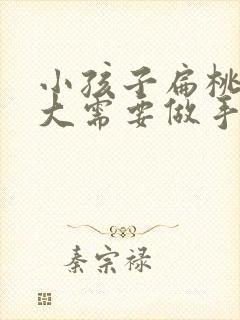 小孩子扁桃
大需要做手
秦宗禄